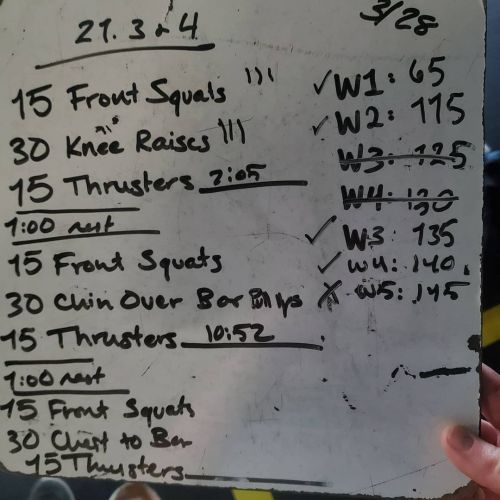 21. 3 & 4
3/28
15 Front Squats |||
30 Knee Raises |||
15 Thrusters 7:05
1:00 rest
15 Front Squats
30 Chin Over Bar
15 Thrusters 10:52
1:00 rest
15 Front Squats
30 Chest to Bar
15 Thrusters
✓ W1: 65
✓ W2: 115
W3: 125
W4: 130
✓ W3: 135
✓ W4: 140
X W5: 145